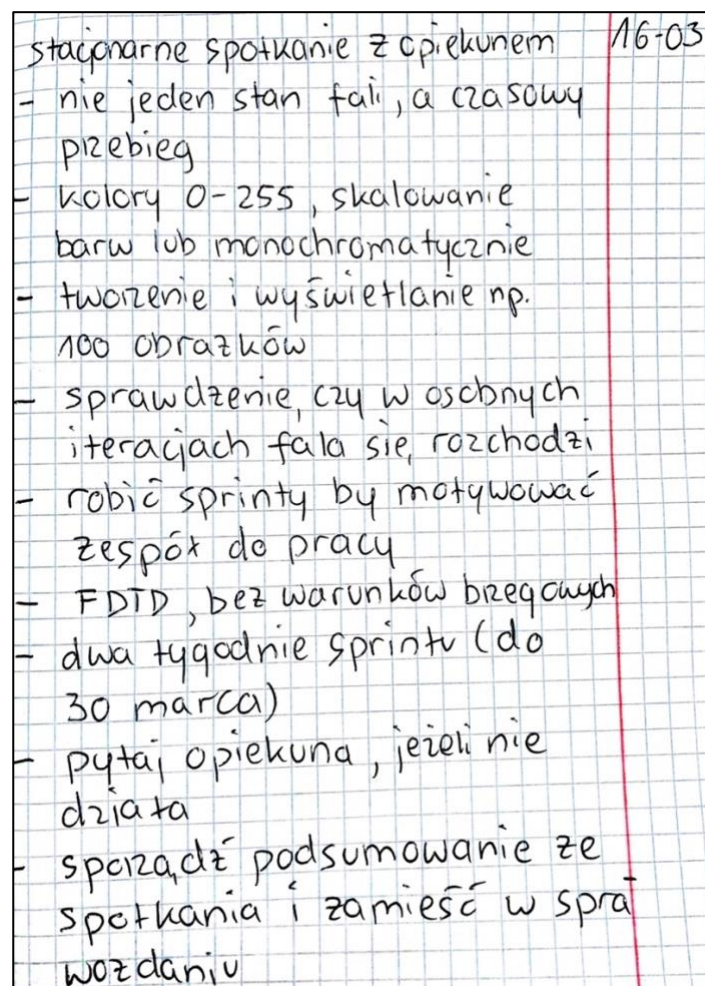 stacjonarne spotkanie z opiekunem 16-03
- nie jeden stan fali, a czasowy
przebieg
- kolory 0-255, skalowanie
barw lub monochromatycznie
- tworzenie i wyświetlanie np.
100 obrazków
- sprawdzenie, czy w osobnych
iteracjach fala się rozchodzi
- robić sprinty by motywować
zespół do pracy
- FDTD, bez warunków brzegowych
- dwa tygodnie sprintu (do
30 marca)
- pytaj opiekuna, jeżeli nie
działa
- sporządź podsumowanie ze
spotkania i zamieść w spra
wozdaniu